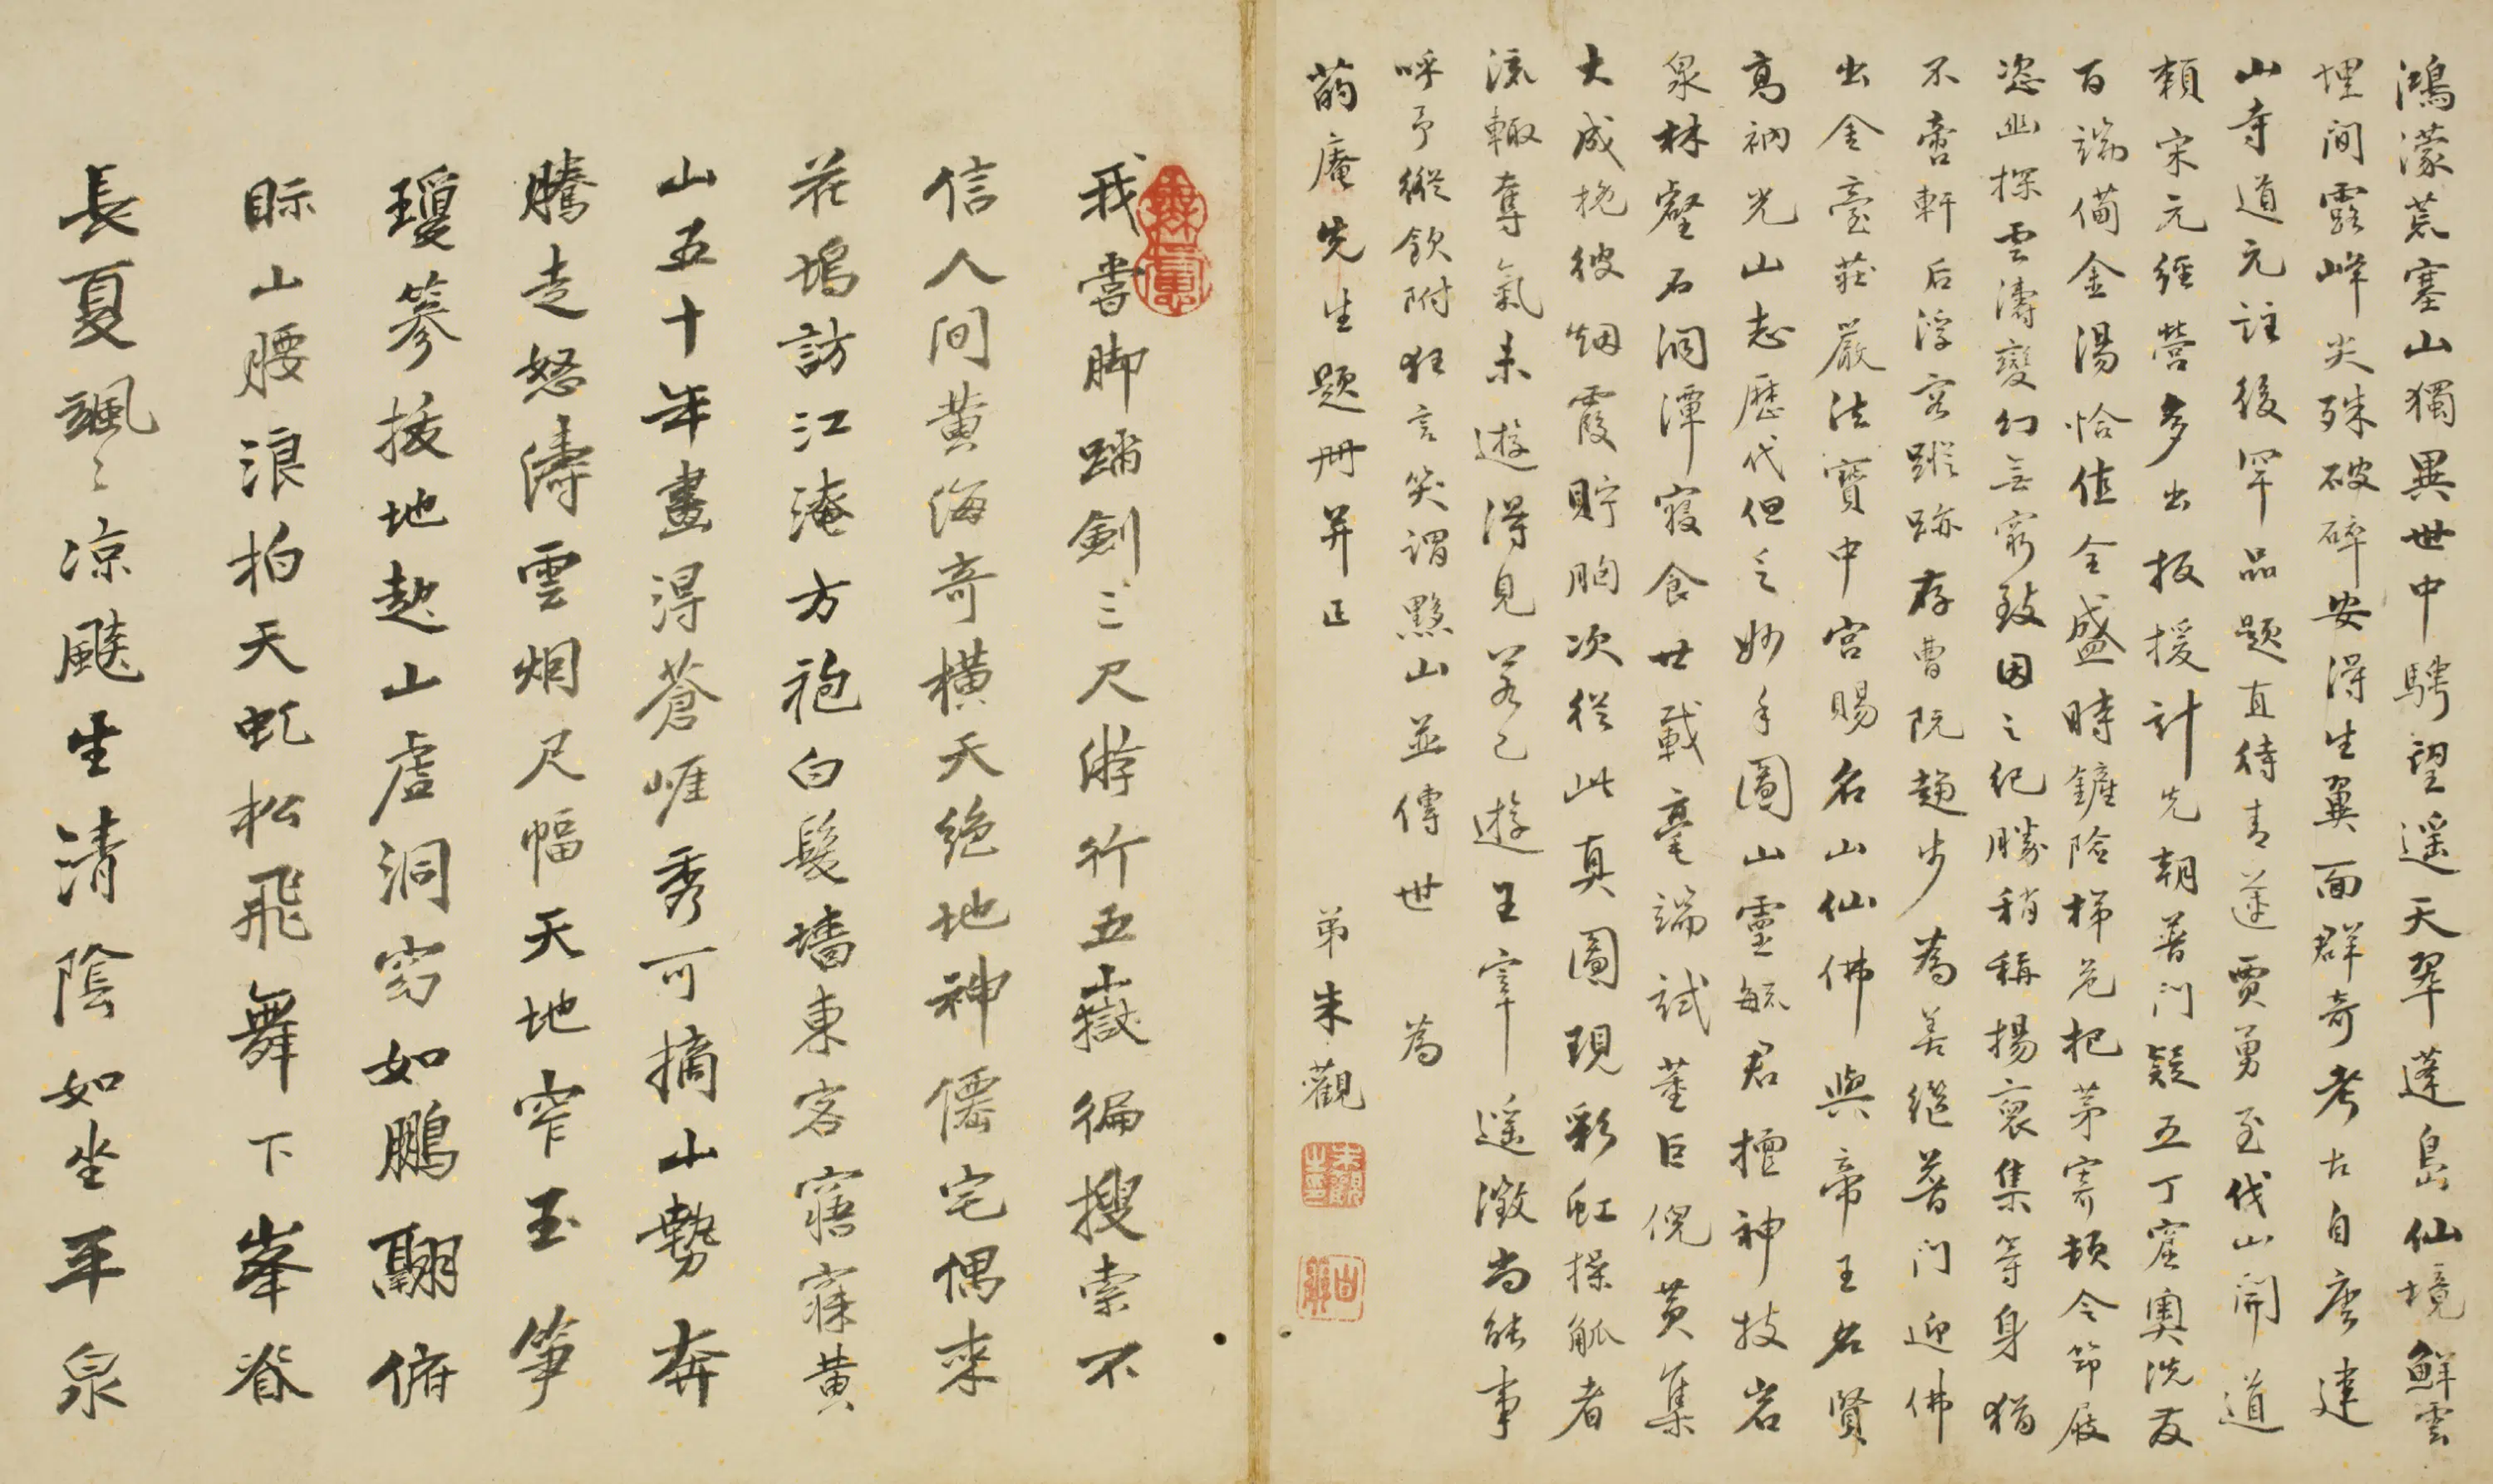 鴻濛荒塞山獨異世中騁望遥天翠蓬島仙境鮮雲
埋间露峰尖殊破碎安得生翼面群奇考古自唐建
山寺道元註後罕品题直待青蓮賈勇至伐山開道
賴宋元經營多出扳援計先朝普门疑五丁窟奧洗友
百端備金湯恰值全盛時鏟险梯危把茅寄頓令節屐
恣幽探雲濤變幻無窮致因之纪勝稍稱揚裒集等身猶
不啻軒后浮容蹤跡存曹阮趋步為善继普门迎佛
出金臺莊嚴法寶中宫賜名山仙佛與帝王名賢
高衲光山志歷代但乏妙手圖山靈毓君擅神技岩
泉林壑石洞潭寢食廿載毫端試董巨倪黄集
大成挽彼烟霞貯胸次從此真圖現彩虹操觚者
流輒奪氣未遊得見若已遊王宰遥激尚能事
呼予縱飲附狂言笑謂黟山並傳世 為
菂庵先生题册并正 弟朱觀
朱觀之印
我嘗脚踏劍三尺游行五嶽徧搜索不
信人间黄海奇橫天绝地神僊宅偶来
荘塢訪江淹方袍白髮墻東客寤寐黄
山五十年畫淂蒼崕秀可摘山勢奔
騰走怒濤雲烟尺幅天地窄玉筝
瓊篸拔地起山虚洞窈如鵬翮俯
眎山腰浪拍天虬松飛舞下峯脊
長夏颯〻凉飈生清陰如坐平泉